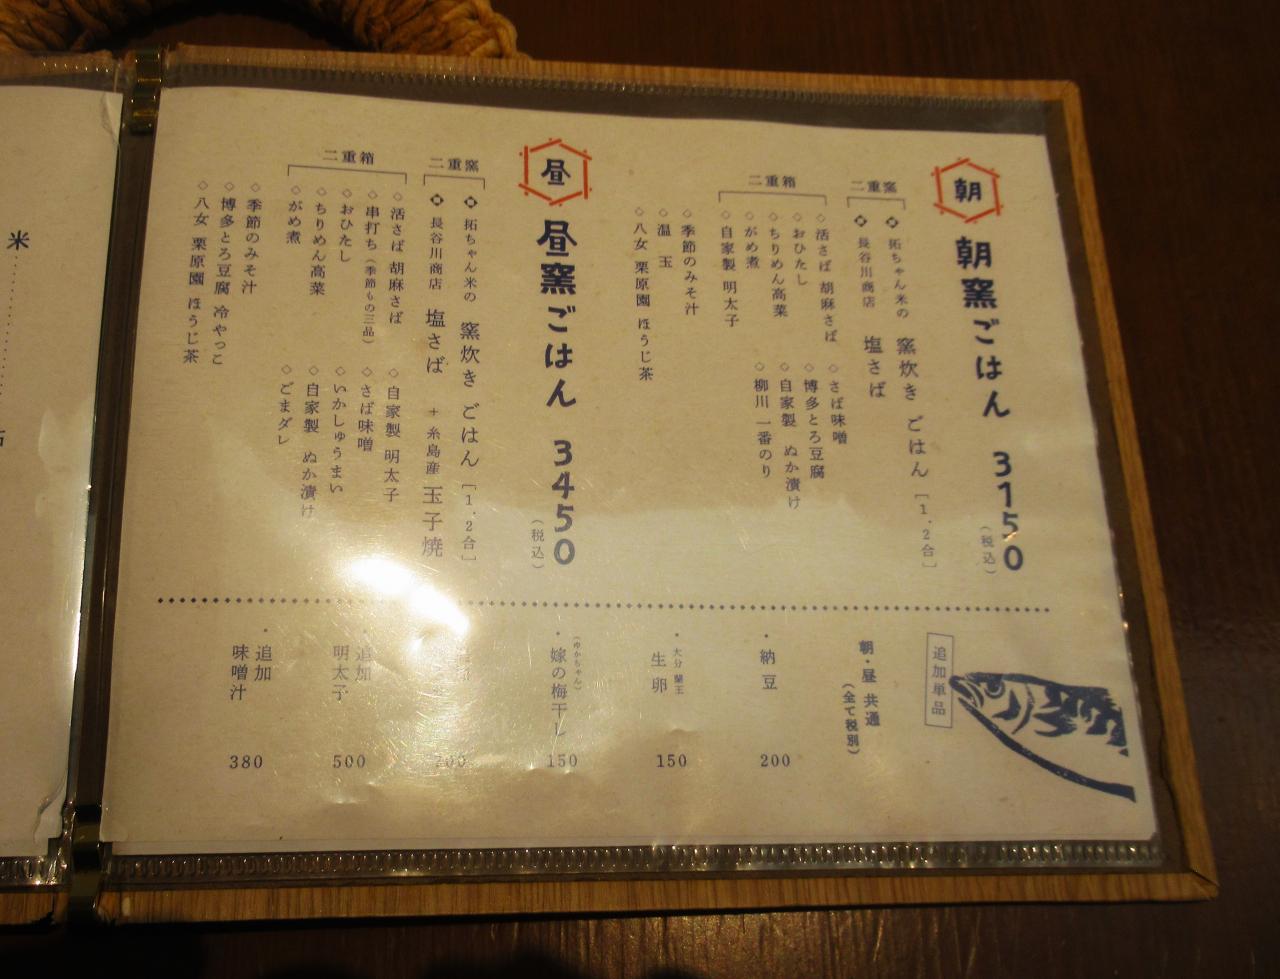 朝
朝窯ごはん 3150
(税込)
二重窯
拓ちゃん米の 窯炊き ごはん [1.2合]
長谷川商店 塩さば
二重箱
活さば 胡麻さば
おひたし
ちりめん高菜
がめ煮
自家製 明太子
さば味噌
博多とろ豆腐
自家製 ぬか漬け
柳川 一番のり
季節のみそ汁
温玉
八女 栗原園 ほうじ茶
昼
昼窯ごはん 3450
(税込)
二重窯
拓ちゃん米の 窯炊き ごはん [1.2合]
長谷川商店 塩さば + 糸島産 玉子焼
二重箱
活さば 胡麻さば
串打ち(季節もの三品)
おひたし
ちりめん高菜
がめ煮
自家製 明太子
さば味噌
いかしゅうまい
自家製 ぬか漬け
ごまダレ
季節のみそ汁
博多とろ豆腐 冷やっこ
八女 栗原園 ほうじ茶
追加単品
朝・昼 共通
(全て税別)
・納豆 200
大分 蘭王
・生卵 150
(ゆかちゃん)
・嫁の梅干し 150
200
・追加
明太子 500
・追加
味噌汁 380
米